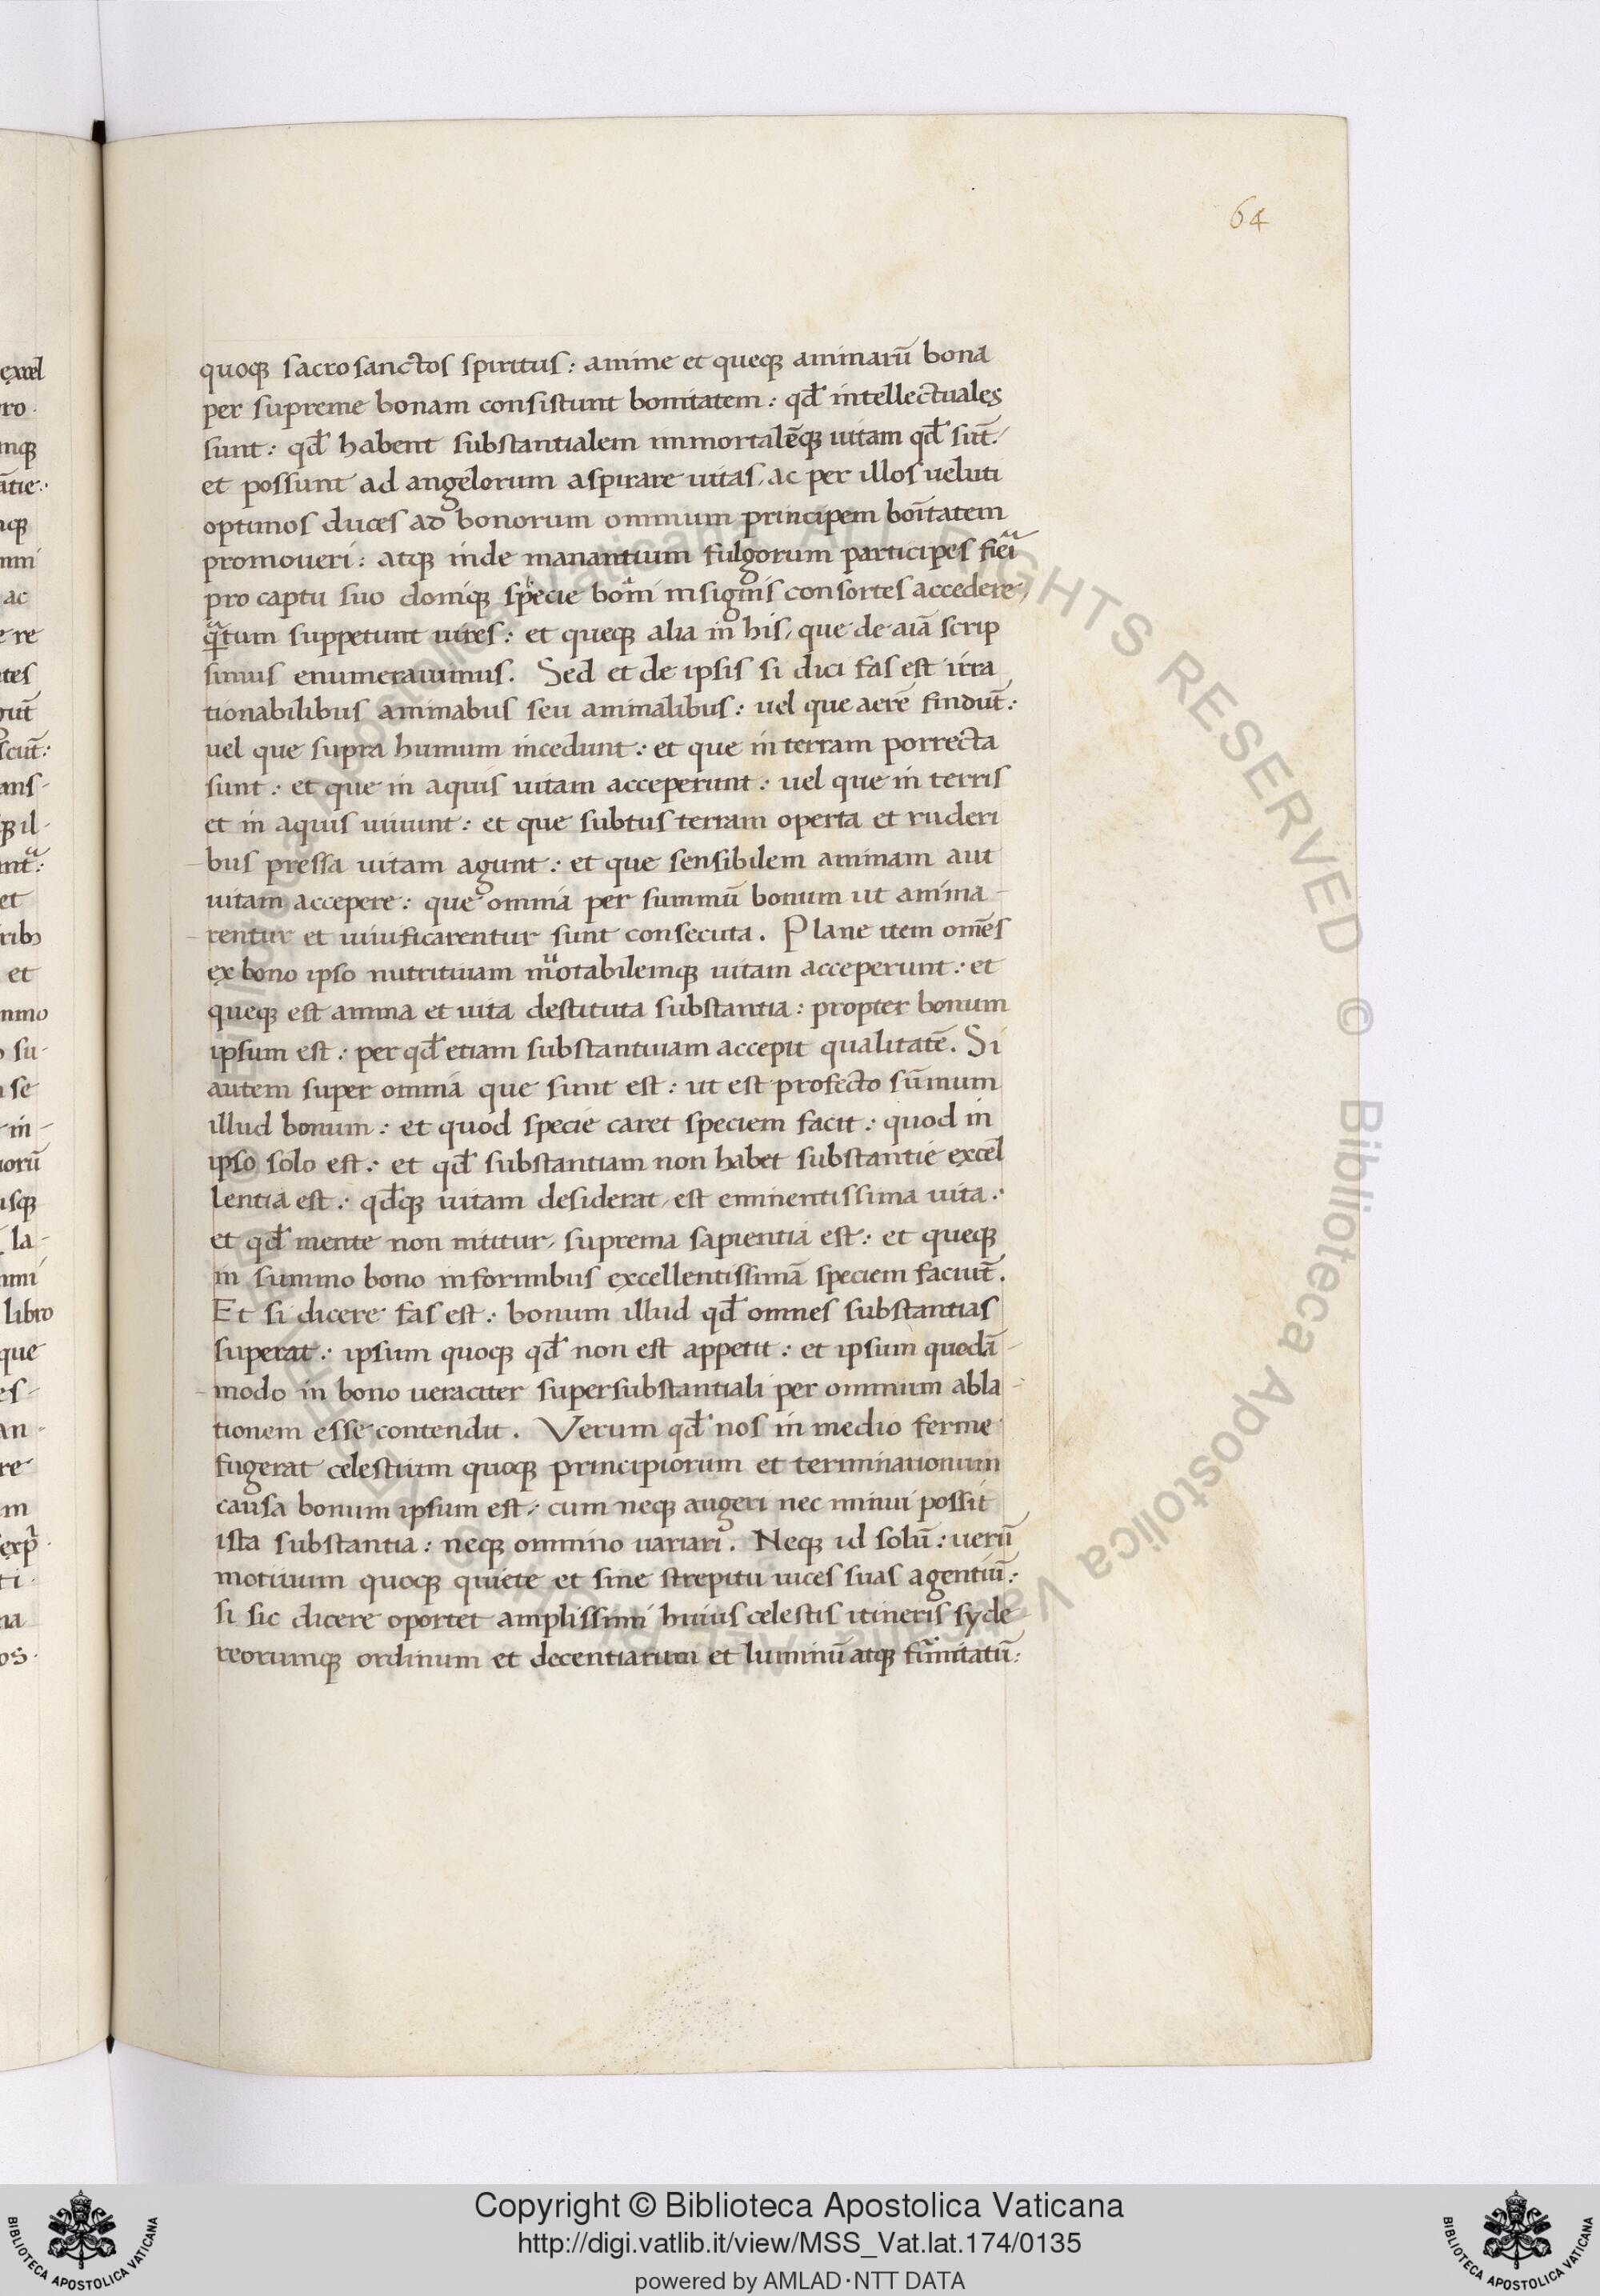 64
quoqꝫ sacrosanctos spiritus: anime et queqꝫ animarū bona
per supreme bonam consistunt bonitatem: qđ intellectuales
sunt: qđ habent substantialem immortalēqꝫ uitam qđ sūt:
et possunt ad angelorum aspirare uitas, ac per illos ueluti
optimos duces ad bonorum omnium principem boītatem
promoueri: atqꝫ inde manantium fulgorum participes fieri
pro captu suo doniqꝫ specie boni insignis consortes accedere,
qͣtum suppetunt uires: et queqꝫ alia in his, que de aīa scrip
simus enumerauimus. Sed et de ipsis si dici fas est irra
tionabilibus animabus seu animalibus: uel que aerē findūt:
uel que supra humum incedunt: et que in terram porrecta
sunt: et que in aquis uitam acceperunt: uel que in terris
et in aquis uiuunt: et que subtus terram operta et ruderi
bus pressa uitam agunt: et que sensibilem animam aut
uitam accepere: que omnia per summū bonum ut anima
rentur et uiuificarentur sunt consecuta. Plane item om̄es
ex bono ipso nutritiuam motabilemqꝫ uitam acceperunt: et
queqꝫ est anima et uita destituta substantia: propter bonum
ipsum est: per qđ etiam substantiuam accepit qualitatē. Si
autem super omnia que sunt est: ut est profecto sūmum
illud bonum: et quod specie caret speciem facit: quod in
ipso solo est: et qđ substantiam non habet substantie excel
lentia est: qđqꝫ uitam desiderat, est eminentissima uita:
et qđ mente non nititur, suprema sapientia est: et queqꝫ
in summo bono informibus excellentissimā speciem faciūt.
Et si dicere fas est: bonum illud qđ omnes substantias
superat: ipsum quoqꝫ qđ non est appetit: et ipsum quodā
modo in bono ueraciter supersubstantiali per omnium abla
tionem esse contendit. Verum qđ nos in medio ferme
fugerat celestium quoqꝫ principiorum et terminationum
causa bonum ipsum est: cum neqꝫ augeri nec minui possit
ista substantia: neqꝫ omnino uariari. Neqꝫ id solū: uerū
motiuum quoqꝫ quiete et sine strepitu uices suas agentiū:
si sic dicere oportet amplissimi huius celestis itineris syde
reorumqꝫ ordinum et decentiarum et luminū atqꝫ firmitatū:
Copyright © Biblioteca Apostolica Vaticana
http://digi.vatlib.it/view/MSS_Vat.lat.174/0135
powered by AMLAD·NTT DATA